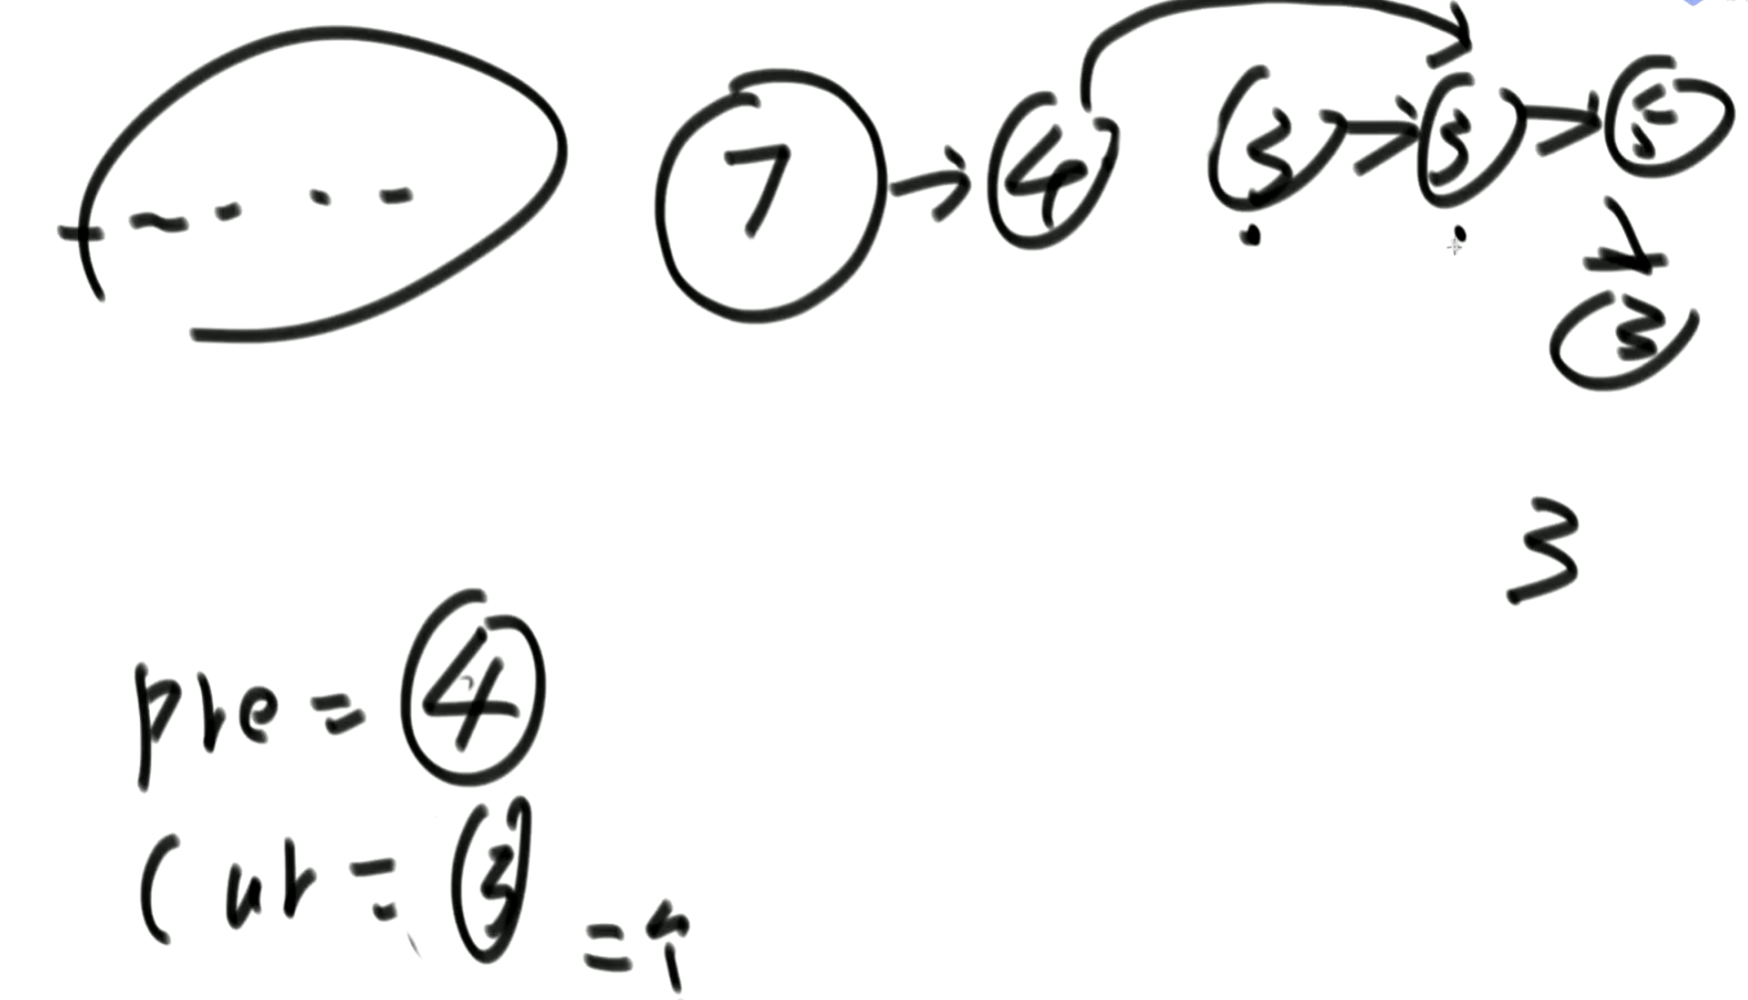 7 → 4 3 → 3 → 5
3
3
pre = 4
Cur = 3 =